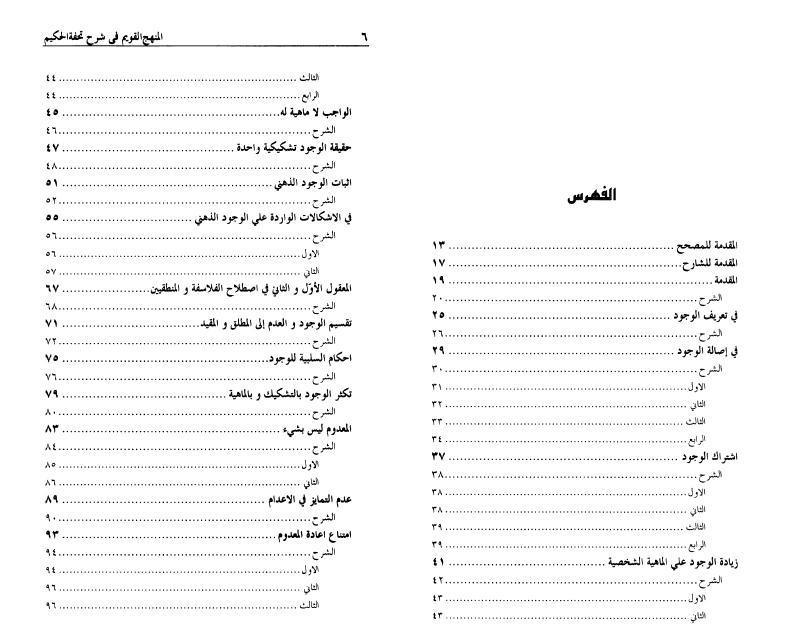 الفهرس
المقدمة للمصحح ... ١٣
المقدمة للشارح ... ١٧
المقدمة ... ١٩
الشرح ... ٢٠
في تعريف الوجود ... ٢٥
الشرح ... ٢٦
في إصالة الوجود ... ٢٩
الشرح ... ٣٠
الاول ... ٣١
الثاني ... ٣٢
الثالث ... ٣٣
الرابع ... ٣٤
اشتراك الوجود ... ٣٧
الشرح ... ٣٨
الاول ... ٣٨
الثاني ... ٣٨
الثالث ... ٣٩
الرابع ... ٣٩
زيادة الوجود علي الماهية الشخصية ... ٤١
الشرح ... ٤٢
الاول ... ٤٣
الثاني ... ٤٣
٦ المنهج القويم في شرح تحفة الحكيم
الثالث ... ٤٤
الرابع ... ٤٤
الواجب لا ماهية له ... ٤٥
الشرح ... ٤٦
حقيقة الوجود تشكيكية واحدة ... ٤٧
الشرح ... ٤٨
اثبات الوجود الذهني ... ٥١
الشرح ... ٥٢
في الاشكالات الواردة علي الوجود الذهني ... ٥٥
الشرح ... ٥٦
الاول ... ٥٦
الثاني ... ٥٧
المعقول الأوّل و الثاني في اصطلاح الفلاسفة و المنطقيين ... ٦٧
الشرح ... ٦٨
تقسيم الوجود و العدم إلى المطلق و المقيد ... ٧١
الشرح ... ٧٢
احكام السلبية للوجود ... ٧٥
الشرح ... ٧٦
تكثر الوجود بالتشكيك و بالماهية ... ٧٩
الشرح ... ٨٠
المعدوم ليس بشيء ... ٨٣
الشرح ... ٨٤
الاول ... ٨٥
الثاني ... ٨٦
عدم التمايز في الاعدام ... ٨٩
الشرح ... ٩٠
امتناع اعادة المعدوم ... ٩٣
الشرح ... ٩٤
الاول ... ٩٤
الثاني ... ٩٦
الثالث ... ٩٦